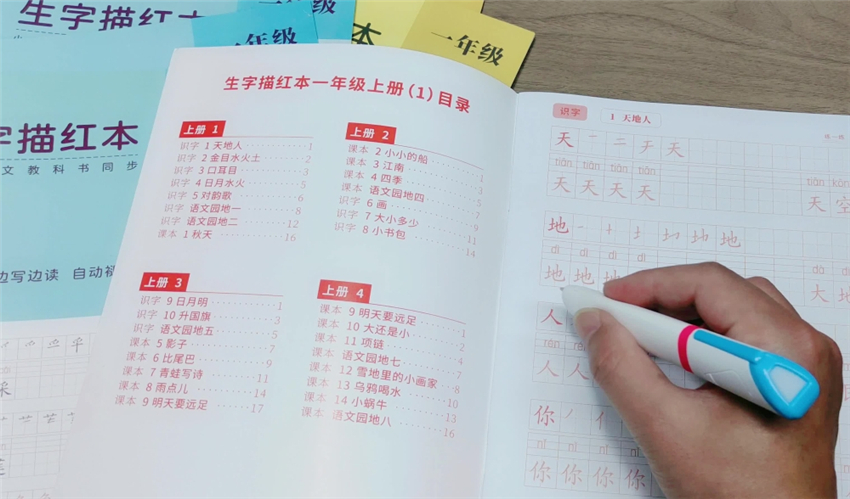 生字描红本
一年级
本
一年级
字描红本
文教科书同步
边写边读 自动
生字描红本一年级上册(1)目录
上册 1
识字 1 天地人 1
识字 2 金目水火土 2
识字 3 口耳目 3
识字 4 日月水火 5
识字 5 对韵歌 6
识字 语文园地一 8
识字 语文园地二 12
课本 1 秋天 16
上册 2
课本 2 小小的船 1
课本 3 江南 3
课本 4 四季 5
课本 语文园地四 7
识字 6 画 7
识字 7 大小多少 9
识字 8 小书包 11
14
上册 3
识字 9 日月明 1
识字 10 升国旗 3
识字 语文园地五 5
课本 5 影子 7
课本 6 比尾巴 9
课本 7 青蛙写诗 11
课本 8 雨点儿 14
课本 9 明天要远足 17
上册 4
课本 9 明天要远足 1
课本 10 大还是小 2
课本 11 项链 4
课本 语文园地七 7
课本 12 雪地里的小画家 8
课本 13 乌鸦喝水 10
课本 14 小蜗牛 13
课本 语文园地八 16
识字
1 天地人
天 一 二 チ 天
tiān tiān tiān tiān tiān kōn
天 天 天 天 天 空
地 地 地
dì dì dà dì
地 地 地 大 地
人
rén rén
人 人
你
nǐ nǐ nǐ nǐ
你 你 你 你